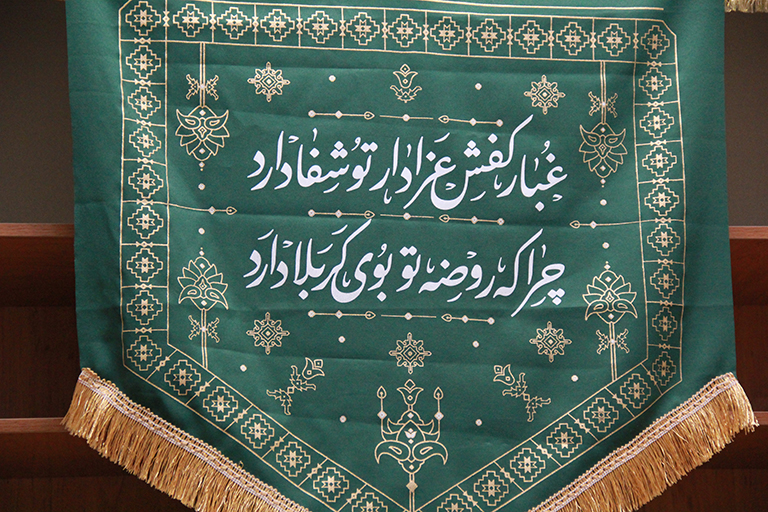 غُبار کفش عَزادار تو شِفا دارد
چرا که روضه تو بُوی کَربَلا دارَد